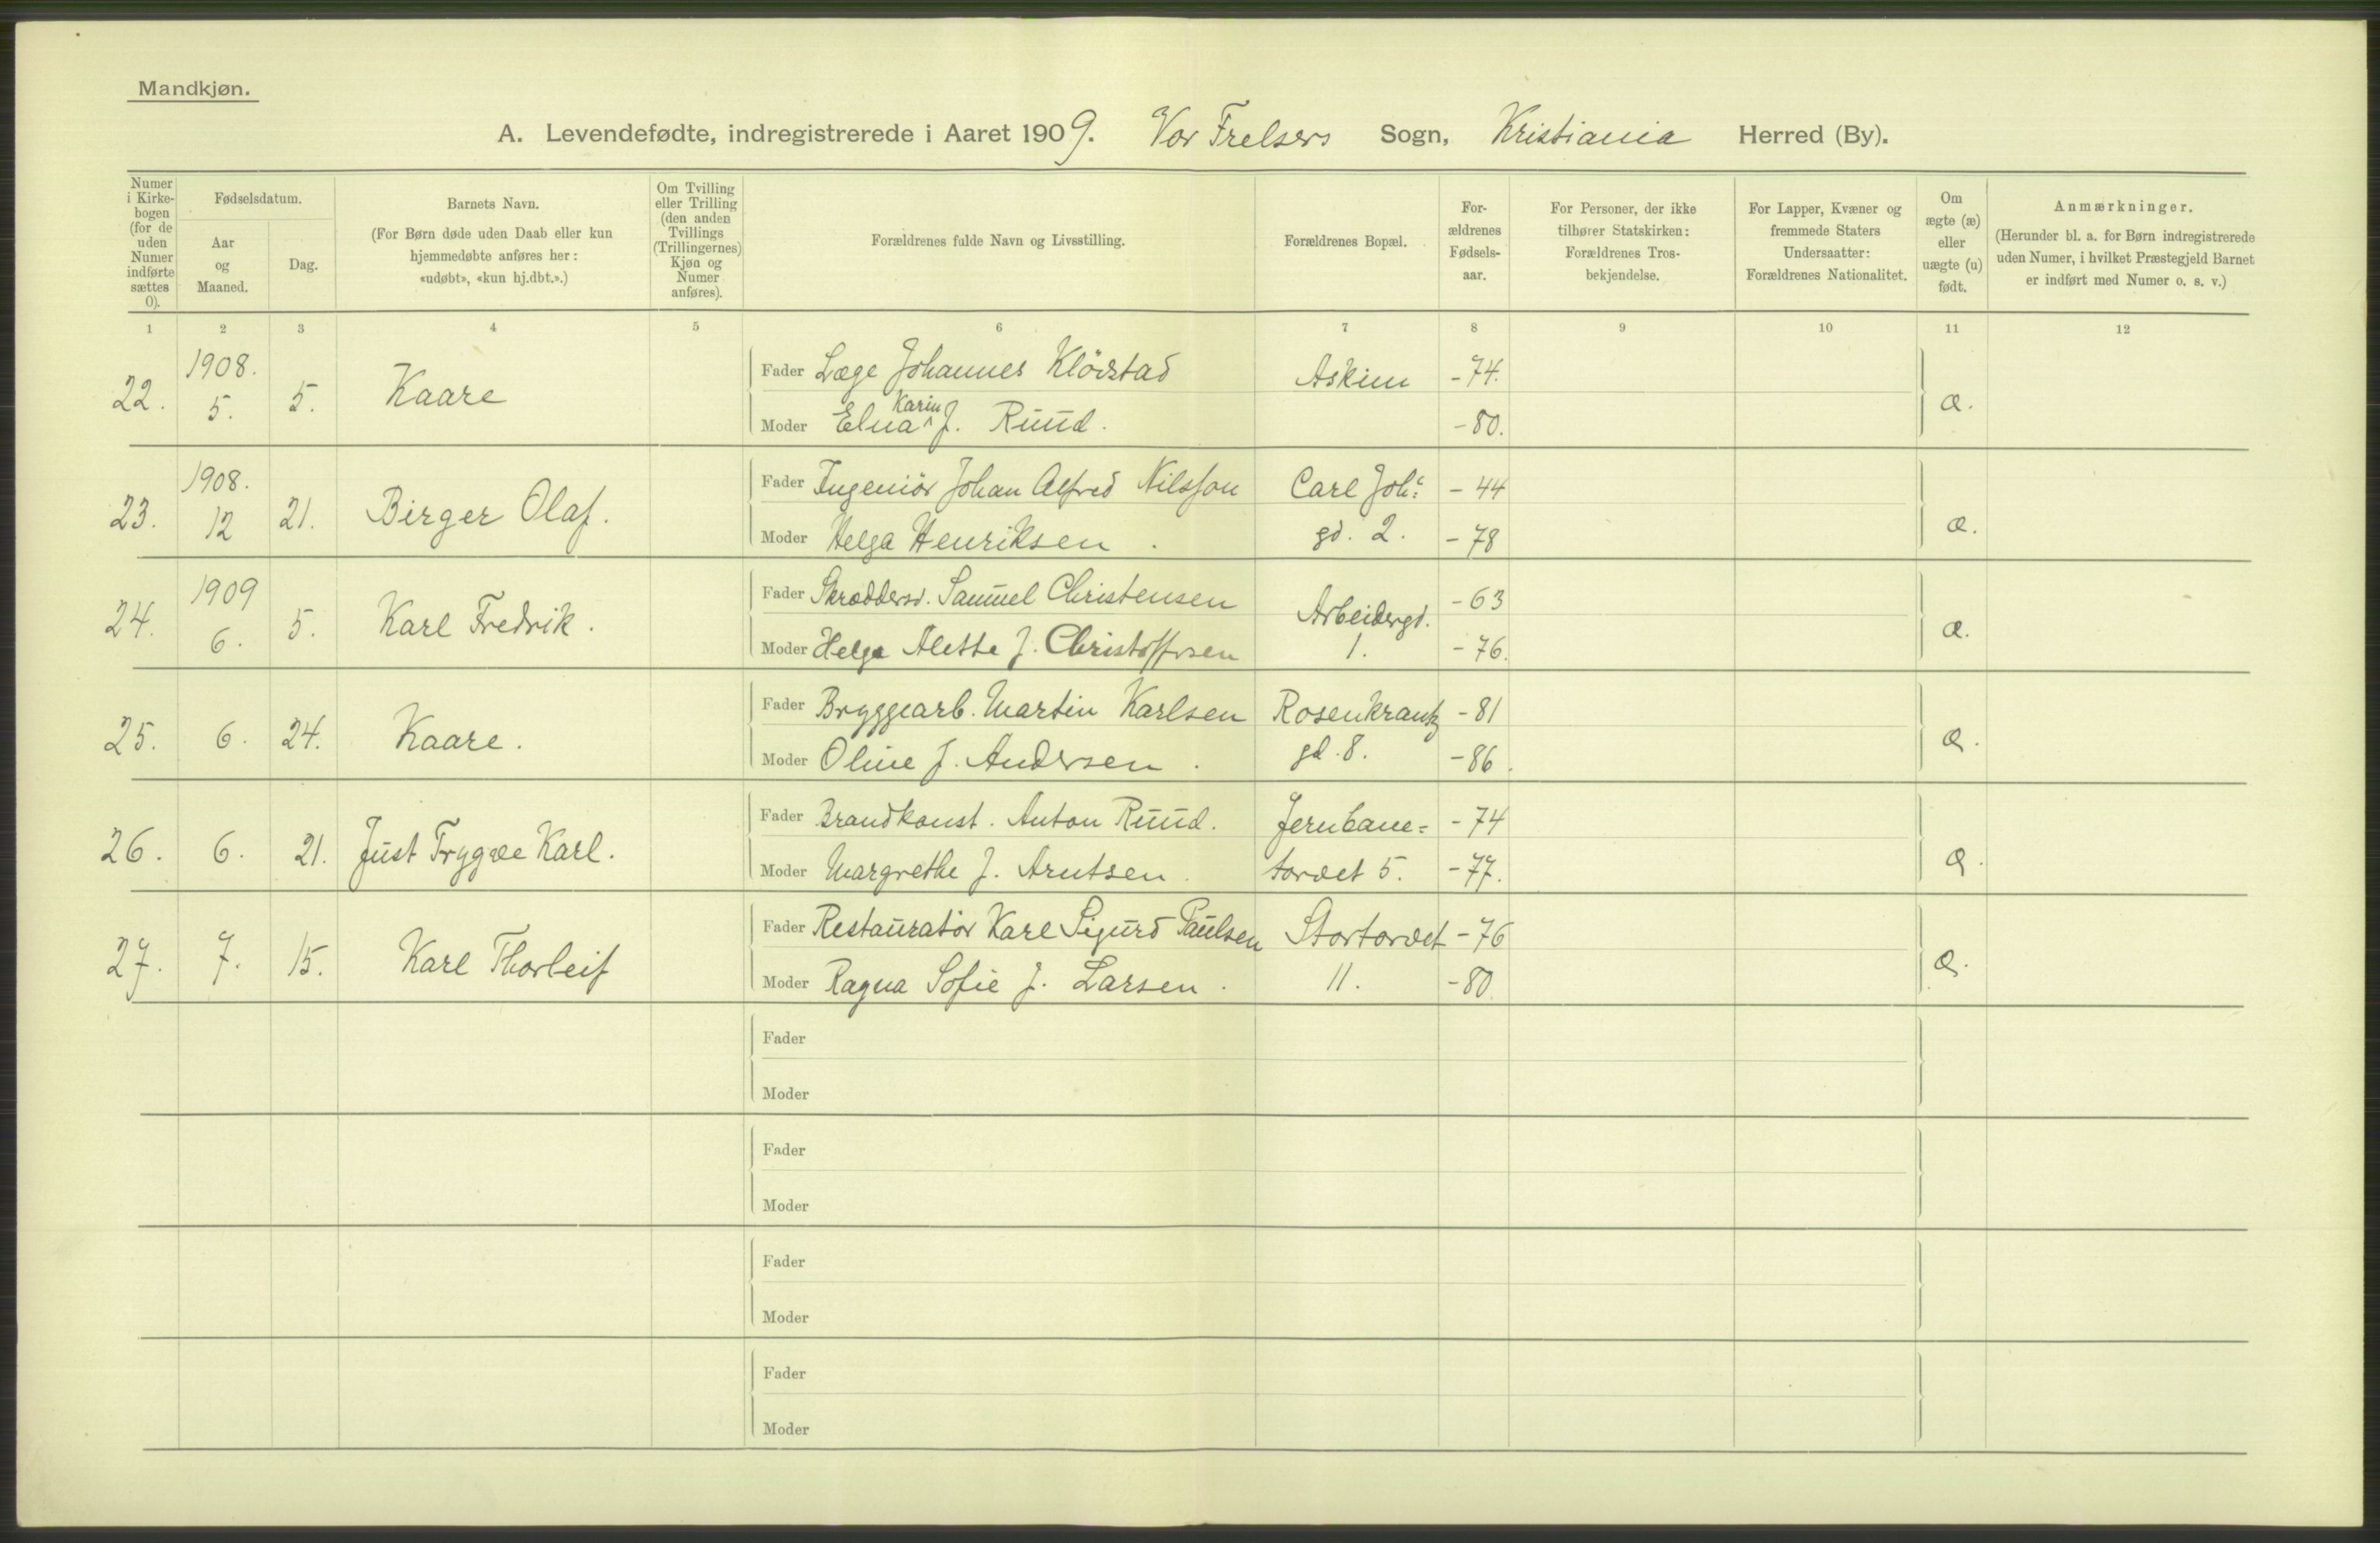 Mandkjøn.
A. Levendefødte, indregistrerede i Aaret 1909. Vor Frelsers Sogn, Kristiania Herred (By).
Numer i Kirkebogen (for de uden Numer indførte sættes 0).
Fødselsdatum.
Aar og Maaned.
Dag.
Barnets Navn.
(For Børn døde uden Daab eller kun hjemmedøbte anføres her: «udøbt», «kun hj.dbt.».)
Om Tvilling eller Trilling (den anden Tvillings (Trillingernes) Kjøn og Numer anføres).
Forældrenes fulde Navn og Livsstilling.
Forældrenes Bopæl.
Forældrenes Fødselsaar.
For Personer, der ikke tilhører Statskirken: Forældrenes Trosbekjendelse.
For Lapper, Kvæner og fremmede Staters Undersaatter: Forældrenes Nationalitet.
Om ægte (æ) eller uægte (u) født.
Anmærkninger.
(Herunder bl. a. for Børn indregistrerede uden Numer, i hvilket Præstegjeld Barnet er indført med Numer o. s. v.)
1 2 3 4 5 6 7 8 9 10 11 12
1908. Fader Læge Johannes Klövstad Askim -74.
22. 5. 5. Kaare æ.
Moder Elna Karin J. Ruud. -80.
1908. Fader Ingeniör Johan Alfred Nilsson Carl Joh: -44
23. 12 21. Birger Olaf. æ.
Moder Helga Henriksen. gd. 2. -78
1909 Fader Skræddersv. Samuel Christensen Arbeidergd. -63
24. 6. 5. Karl Fredrik. æ.
Moder Helga Alette J. Christoffersen 1. -76.
Fader Bryggearb. Martin Karlsen Rosenkrantz -81
25. 6. 24. Kaare. æ.
Moder Oline J. Andersen. gd. 8. -86.
Fader Brandkonst. Anton Ruud. Jernbane= -74
26. 6. 21. Just Trygve Karl. æ.
Moder Margrethe J. Arntsen. torvet 5. -77.
Fader Restauratör Karl Sigurd Paulsen Stortorvet -76
27. 7. 15. Karl Thorleif æ.
Moder Ragna Sofie J. Larsen. 11. -80.
Fader
Moder
Fader
Moder
Fader
Moder
Fader
Moder